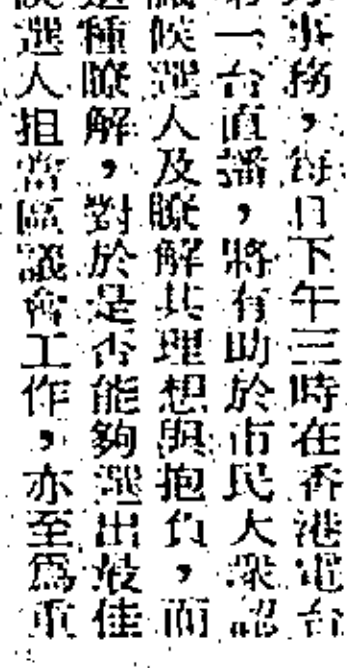 事務，每日下午三時在香港電台
一台直播，將有助於市民大衆認
識候選人及瞭解其理想與抱負，而
這種瞭解，對於是否能夠選出最佳
選人担當區議會工作，亦至爲重